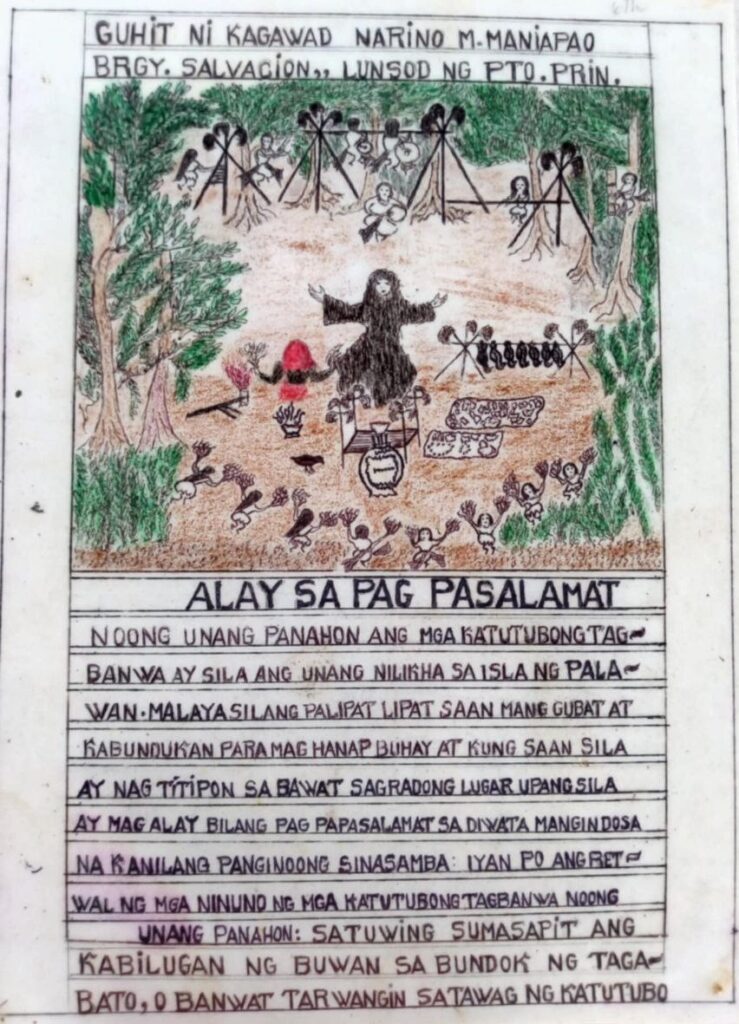 GUHIT NI KAGAWAD NARINO M. MANIAPAO
BRGY. SALVACION,, LUNSOD NG PTO. PRIN.
ALAY SA PAG PASALAMAT
NOONG UNANG PANAHON ANG MGA KATUTUBONG TAG-
BANWA AY SILA ANG UNANG NILIKHA SA ISLA NG PALA-
WAN. MALAYA SILANG PALIPAT LIPAT SAAN MANG GUBAT AT
KABUNDUKAN PARA MAG HANAP BUHAY AT KUNG SAAN SILA
AY NAG TITIPON SA BAWAT SAGRADONG LUGAR UPANG SILA
AY MAG ALAY BILANG PAG PAPASALAMAT SA DIWATA MANGINDOSA
NA KANILANG PANGINOONG SINASAMBA: IYAN PO ANG RET-
WAL NG MGA NINUNO NG MGA KATUTUBONG TAGBANWA NOONG
UNANG PANAHON: SATUWING SUMASAPIT ANG
KABILUGAN NG BUWAN SA BUNDOK NG TAGA-
BATO, O BANWAT TARWANGIN SATAWAG NG KATUTUBO